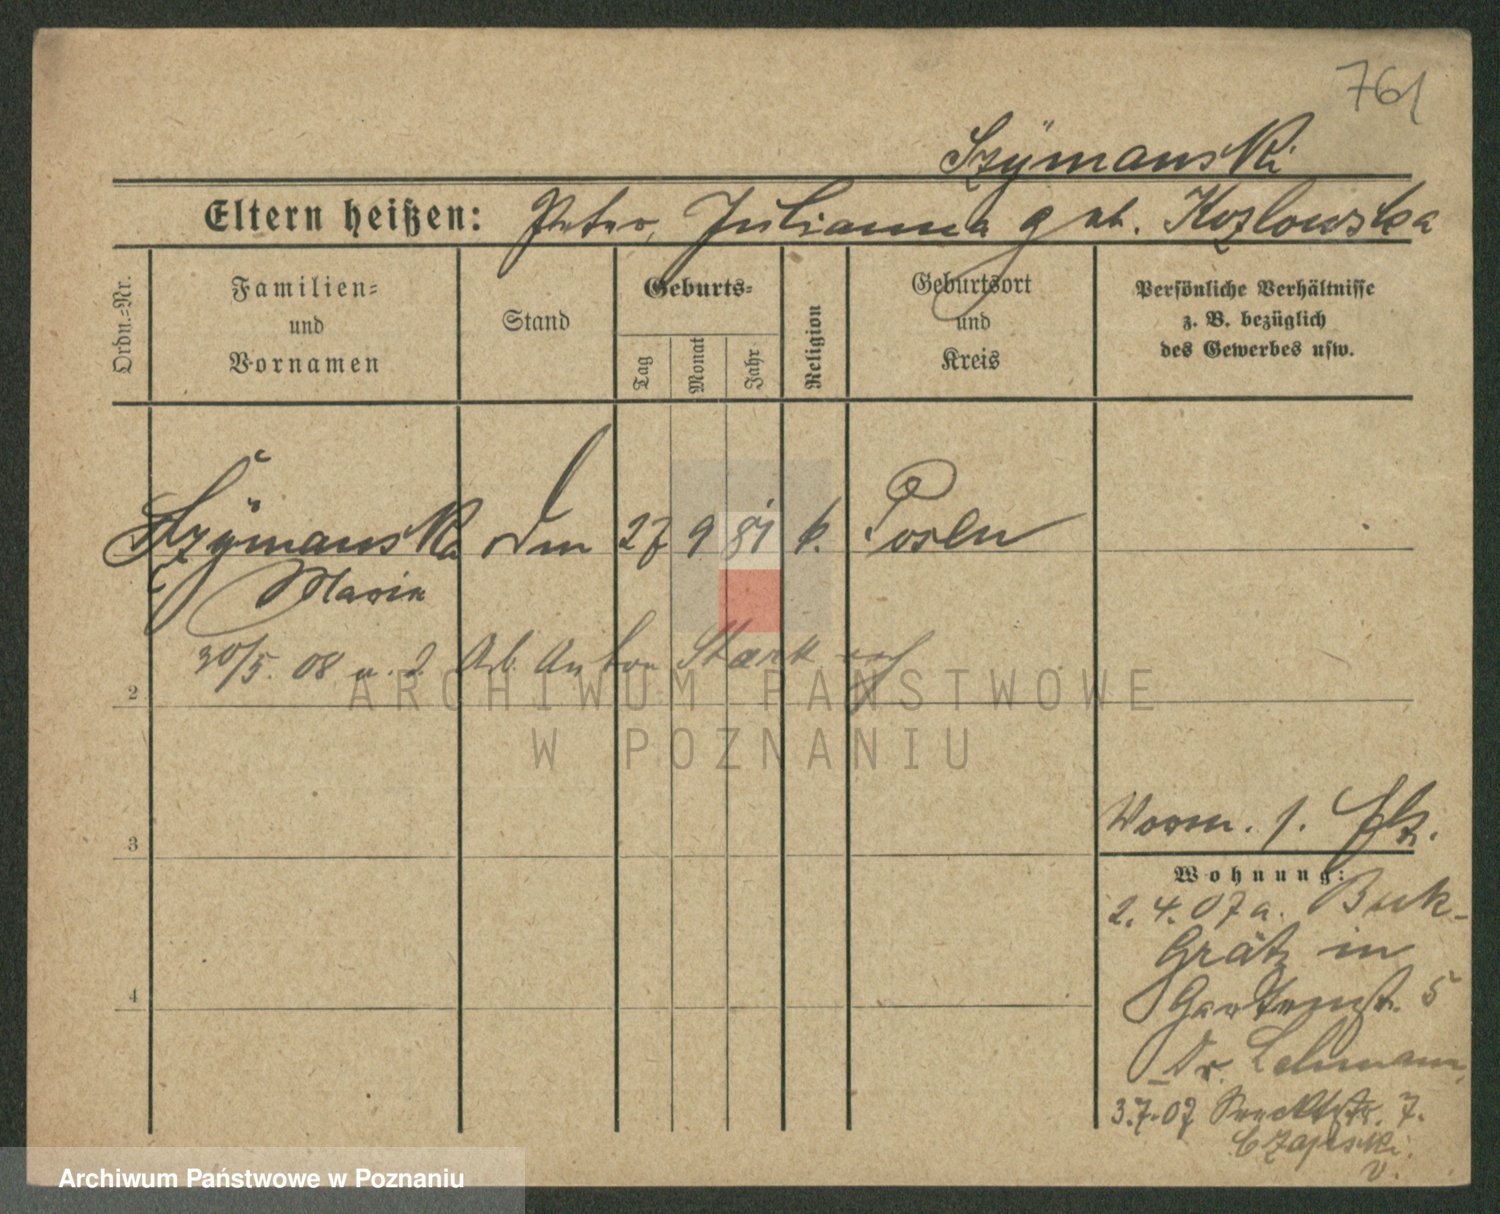 761
Szÿmanski
Eltern heißen: Peter, Julianna geb. Kozlowska
Ordn.-Nr.
Familien-
und
Vornamen
Stand
Geburts-
Tag
Monat
Jahr
Religion
Geburtsort
und
Kreis
Persönliche Verhältnisse
z. B. bezüglich
des Gewerbes usw.
Szÿmanska 27 9 81 k. Posen
Maria
30/5. 08 Arb. Anton
2
3
4
Wohnung:
2.4.07 a. Buk-
Grätz in
Gartenstr. 5
Dr. Lehmann,
3.7.07 7.
Czapski
v.
ARCHIWUM PAŃSTWOWE
W POZNANIU
Archiwum Państwowe w Poznaniu